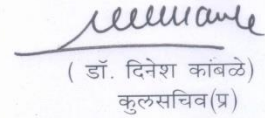 ( डॉ. दिनेश कांबळे)
कुलसचिव(प्र)